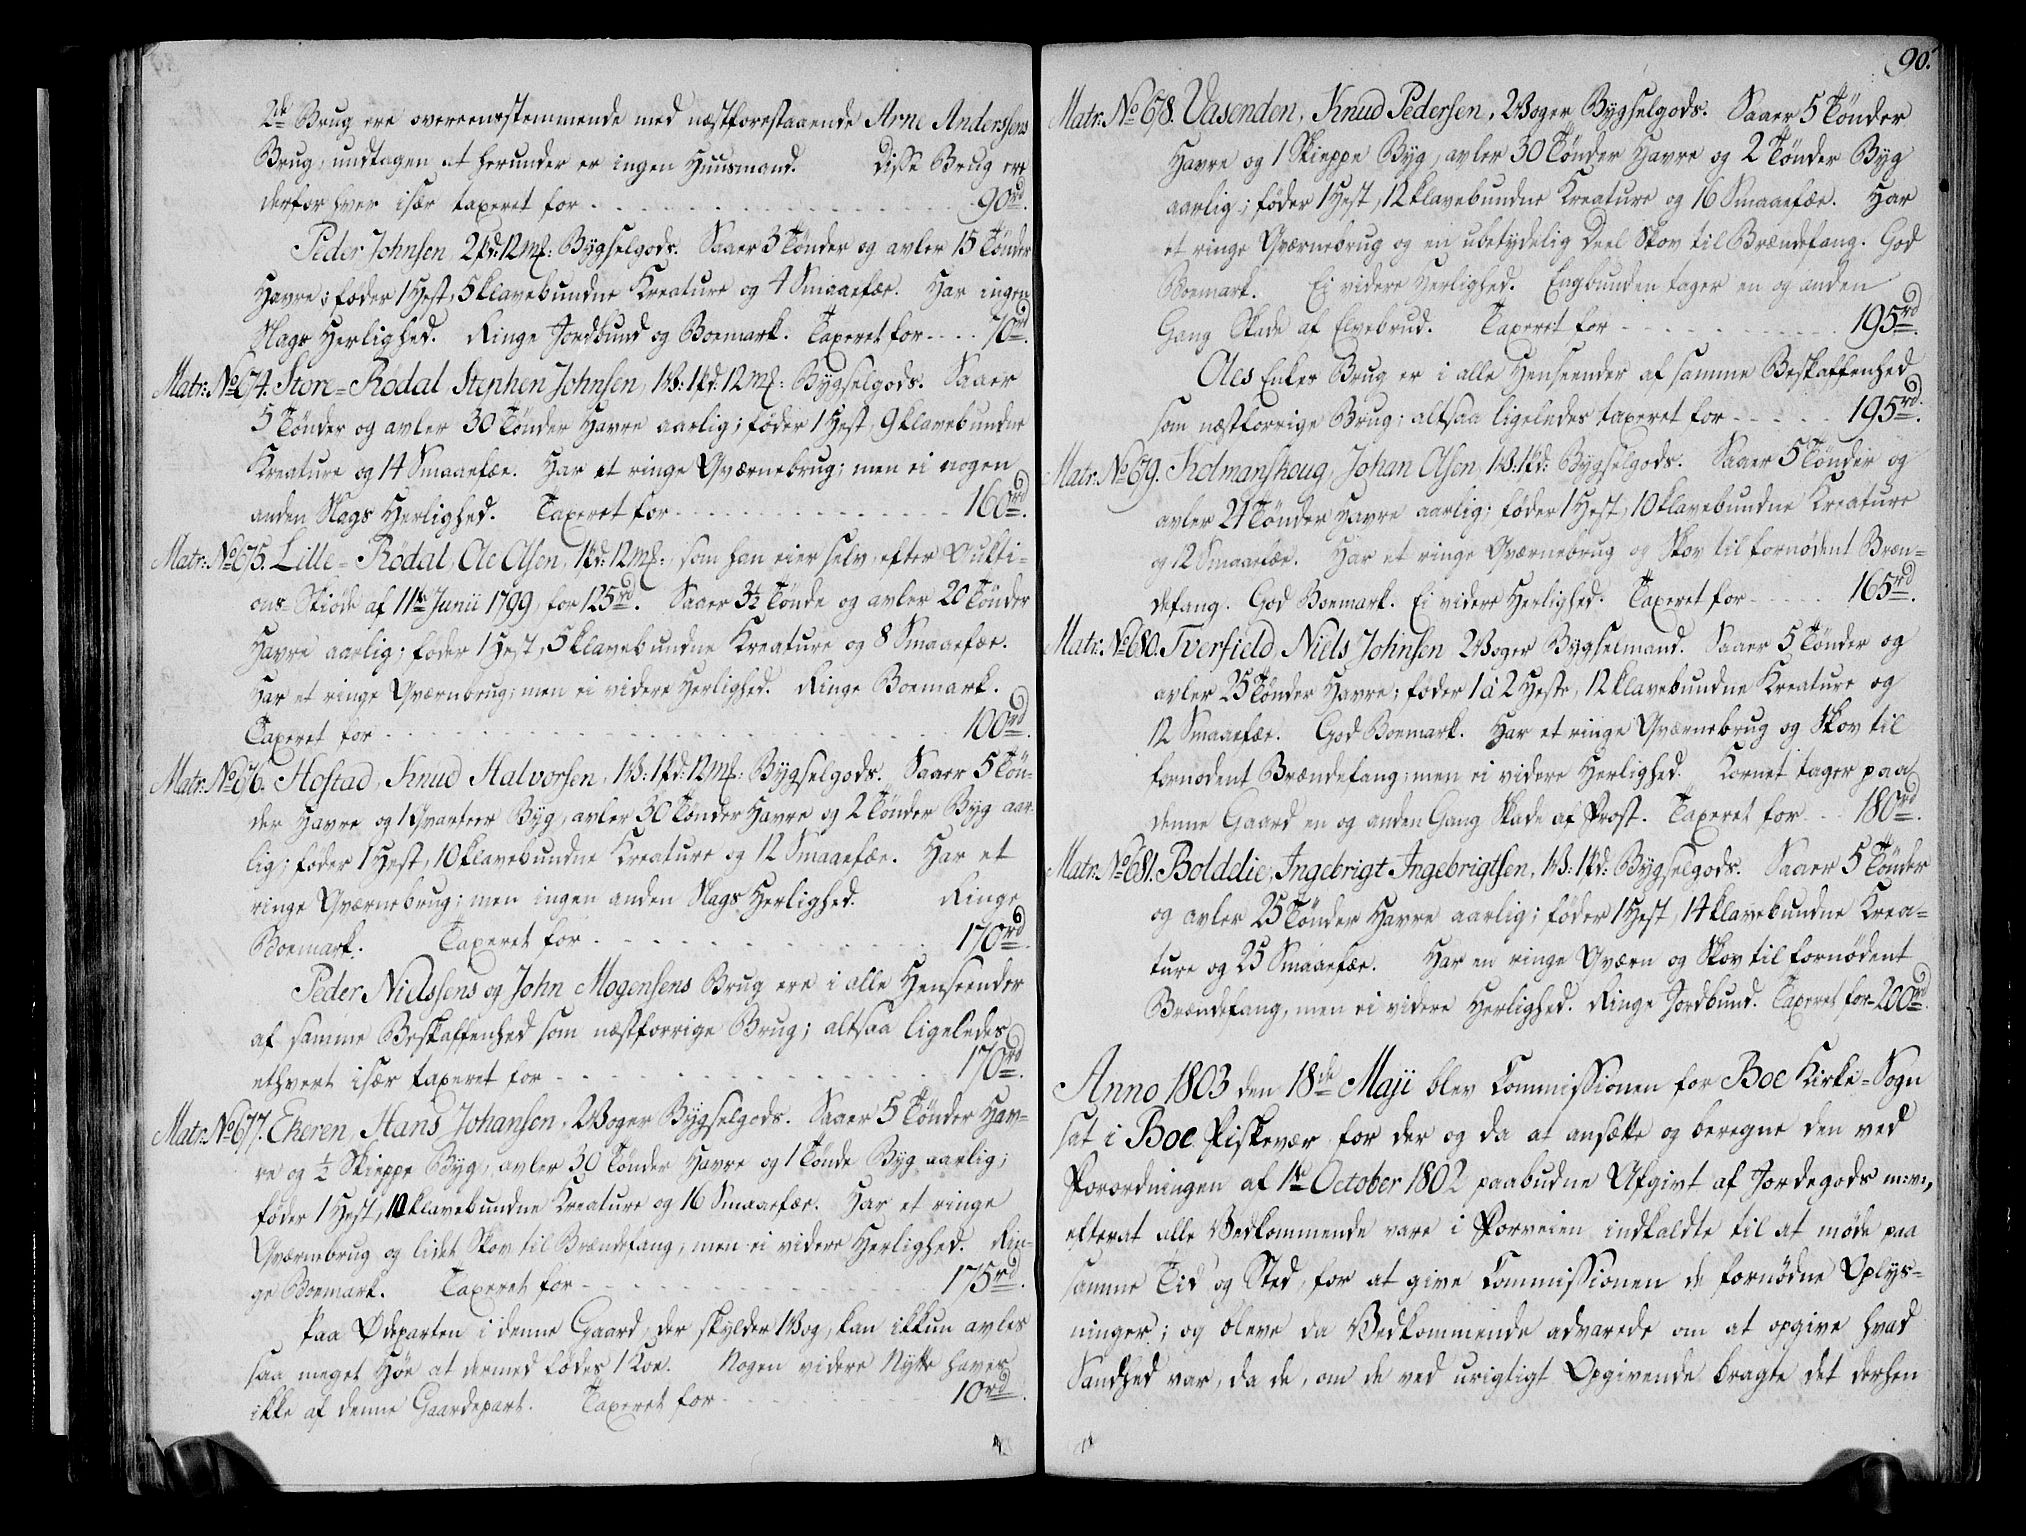 2de Brug ere overeensstemmende med næstforestaaende Arne Anderssens
Brug, undtagen at herunder er ingen Huusmand. Disse Brug ere
derfor hver især taxeret for - - - 90rd.
Peder Johnsen, 2pd: 12mk: Bygselgods. Saaer 3 Tönder og avler 15 Tönder
Havre; föder 1 Hest, 5 klavebundne Kreature og 4 Smaaefæe. Har ingen
Slags Herlighed. Ringe Jordbund og Boemark. Taxeret for - - - 70rd.
Matr: No 674. Store-Rödal, Stephen Johnsen, 1V: 1pd: 12mk: Bygselgods. Saaer
5 Tönder og avler 30 Tönder Havre aarlig; föder 1 Hest, 9 klavebundne
Kreature og 14 Smaaefæe. Har et ringe Qværnebrug; men ei nogen
anden Slags Herlighed. Taxeret for - - - 160rd.
Matr: No 675. Lille-Rödal, Ole Olsen, 1pd: 12mk:, som han eier selv, efter Aukti-
ons-Skiöde af 11te Junii 1799, for 125rd. Saaer 3½ Tönde og avler 20 Tönder
Havre aarlig; föder 1 Hest, 5 klavebundne Kreature og 8 Smaaefæe.
Har et ringe Qværnbrug; men ei videre Herlighed. Ringe Boemark.
Taxeret for - - - 100rd.
Matr: No 676. Hostad, Knud Halvorsen, 1V: 1pd: 12mk: Bygselgods. Saaer 5 Tön-
der Havre og 1 Qvarteer Byg, avler 30 Tönder Havre og 2 Tönder Byg aar-
lig; föder 1 Hest, 10 klavebundne Kreature og 12 Smaaefæe. Har et
ringe Qværnebrug; men ingen anden Slags Herlighed. Ringe
Boemark. Taxeret for - - - 170rd.
Peder Nielssens og John Mogensens Brug ere i alle Henseender
af samme Beskaffenhed som næstforrige Brug; altsaa ligeledes
ethvert især taxeret for - - - 170rd.
Matr: No 677. Ekeren, Hans Johansen, 2 Voger Bygselgods. Saaer 5 Tönder Hav-
re og ½ Skieppe Byg, avler 30 Tönder Havre og 1 Tönde Byg aarlig;
föder 1 Hest, 10 klavebundne Kreature og 16 Smaaefæe. Har et ringe
Qværnebrug og lidet Skov til Brændefang, men ei videre Herlighed. Rin-
ge Boemark. Taxeret for - - - 175rd.
Paa Ödeparten i denne Gaard, der skylder 1 Vog, kan ikkun avles
saa meget Höe at dermed födes 1 Koe. Nogen videre Nytte haves
ikke af denne Gaardepart. Taxeret for - - - 10rd.
90.
Matr: No 678. Vasenden, Knud Pedersen, 2 Voger Bygselgods. Saaer 5 Tönder
Havre og 1 Skieppe Byg, avler 30 Tönder Havre og 2 Tönder Byg
aarlig; föder 1 Hest, 12 klavebundne Kreature og 16 Smaaefæe. Har
et ringe Qværnebrug og en ubetydelig Deel Skov til Brændefang. God
Boemark. Ei videre Herlighed. Engbunden tager en og anden
Gang Skade af Elvebrud. Taxeret for - - - 195rd.
Oles Enkes Brug er i alle Henseender af samme Beskaffenhed
som næstforrige Brug; altsaa ligeledes taxeret for - - - 195rd.
Matr: No 679. Holmanskoug, Johan Olsen, 1V: 1pd: Bygselgods. Saaer 5 Tönder og
avler 21 Tönder Havre aarlig; föder 1 Hest, 10 klavebundne Kreature
og 12 Smaaefæe. Har et ringe Qværnebrug og Skov til fornödent Bræn-
defang. God Boemark. Ei videre Herlighed. Taxeret for - - - 165rd.
Matr: No 680. Tverfield, Niels Johnsen 2 Voger Bygselmand. Saaer 5 Tönder og
avler 25 Tönder Havre; föder 1 à 2 Heste, 12 klavebundne Kreature og
12 Smaaefæe. God Boemark. Har et ringe Qværnebrug og Skov til
fornödent Brændefang; men ei videre Herlighed. Kornet tager paa
denne Gaard en og anden Gang Skade af Frost. Taxeret for - - - 180rd.
Matr: No 681. Bolddie, Ingebrigt Ingebrigtsen, 1V: 1pd: Bygselgods. Saaer 5 Tönder
og avler 25 Tönder Havre aarlig; föder 1 Hest, 14 klavebundne Krea-
ture og 25 Smaaefæe. Har en ringe Qværn og Skov til fornödent
Brændefang, men ei videre Herlighed. Ringe Jordbund. Taxeret for - 200rd.
Anno 1803 den 18de Maji blev Commissionen for Boe Kirke-Sogn
sat i Boe Fiskevær for der og da at ansætte og beregne den ved
Forordningen af 1te October 1802 paabudne Afgivt af Jordegods m:v:,
efterat alle Vedkommende vare i Forveien indkaldte til at möde paa
samme Tid og Sted, for at give Commissionen de fornödne Oplys-
ninger; og bleve da Vedkommende advarede om at opgive hvad
Sandhed var, da de, om de ved urigtigt Opgivende bragte det derhen